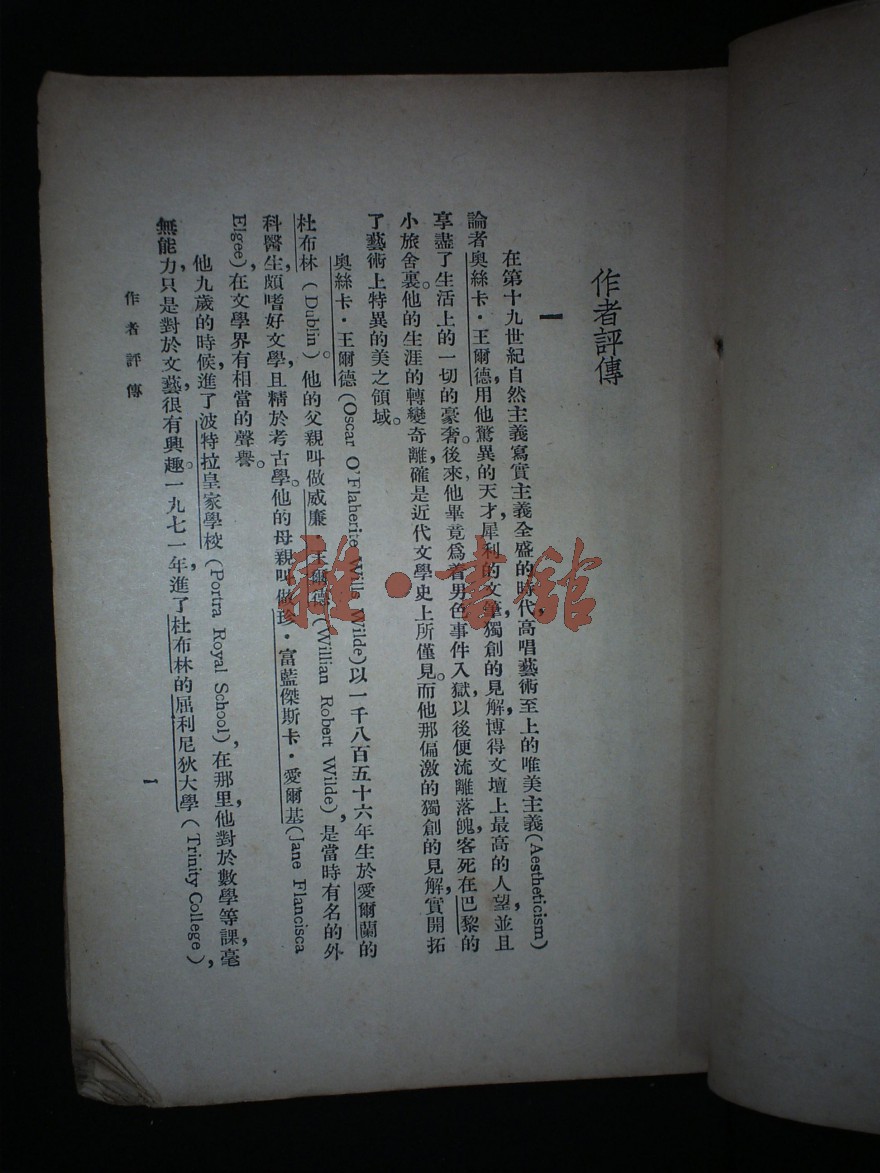 作者評傳
一
在第十九世紀自然主義寫實主義全盛的時代，高唱藝術至上的唯美主義(Aestheticism)
論者奧絲卡·王爾德，用他驚異的天才，犀利的文筆，獨創的見解，博得文壇上最高的人望，並且
享盡了生活上的一切的豪奢。後來，他畢竟爲着男色事件入獄，以後便流離落魄，客死在巴黎的
小旅舍裏。他的生涯的轉變奇離，確是近代文學史上所僅見。而他那偏激的獨創的見解，實開拓
了藝術上特異的美之領域。
奧絲卡·王爾德(Oscar O'Flaherite Wills Wilde)以一千八百五十六年生於愛爾蘭的
杜布林(Dublin)。他的父親叫做威廉·王爾德(Willian Robert Wilde)，是當時有名的外
科醫生，頗嗜好文學，且精於考古學。他的母親叫做珍·富藍傑斯卡·愛爾基(Jane Flancisca
Elgee)，在文學界有相當的聲譽。
他九歲的時候，進了波特拉皇家學校(Portra Royal School)，在那里，他對於數學等課，毫
無能力，只是對於文藝，很有興趣。一九七一年，進了杜布林的屈利尼狄大學(Trinity College)，
作者評傳
一
雜·書館